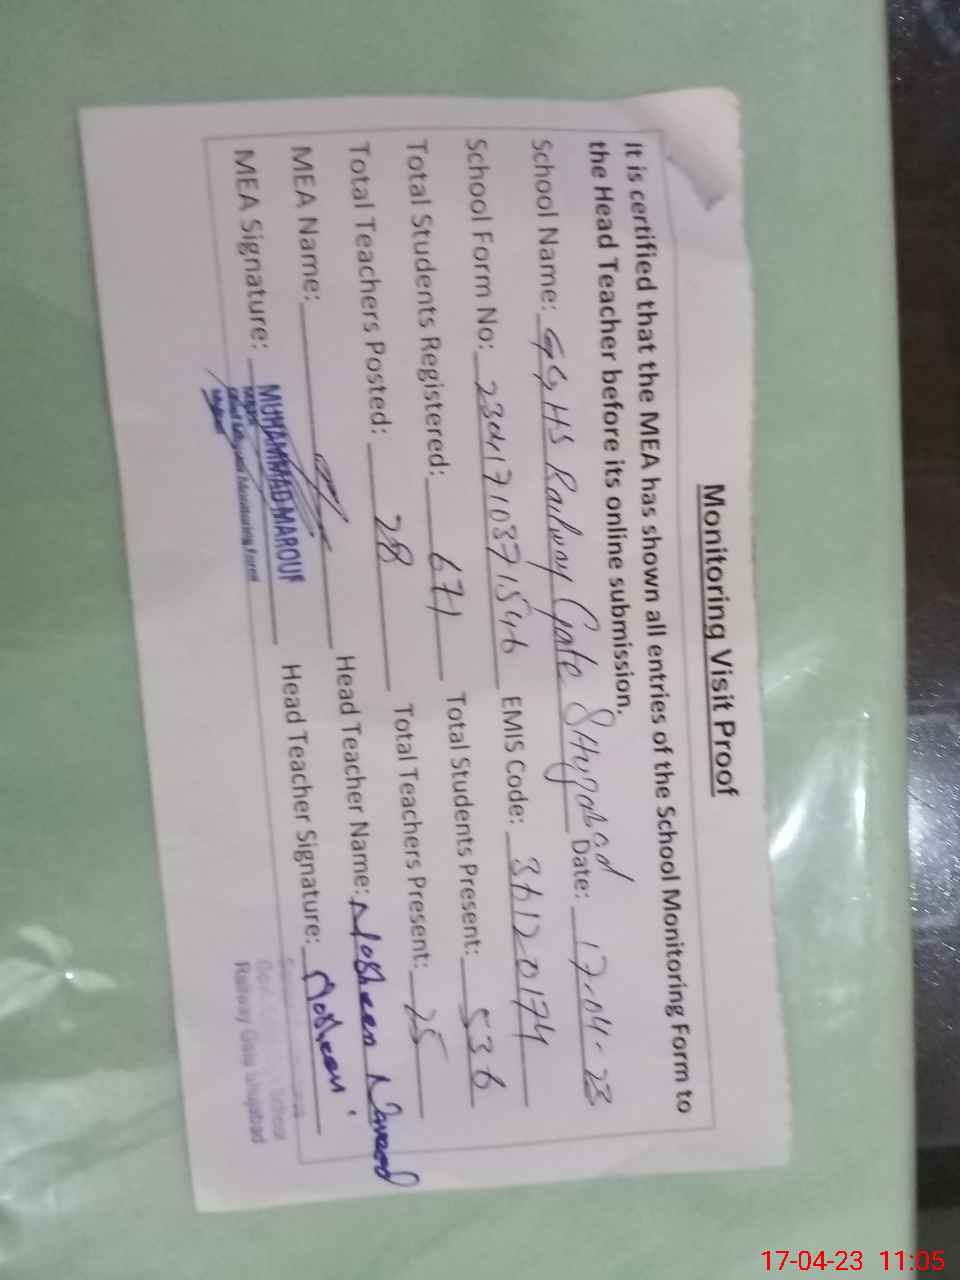 Monitoring Visit Proof
It is certified that the MEA has shown all entries of the School Monitoring Form to
the Head Teacher before its online submission.
School Name: GGHS Railway Gate Shujabad Date: 17-04-23
School Form No: 23041710371546 EMIS Code: 36120174
Total Students Registered: 671 Total Students Present: 536
Total Teachers Posted: 28 Total Teachers Present: 25
MEA Name: Head Teacher Name: Nosheen Naveed
MEA Signature: Head Teacher Signature: Nosheen
MUHAMMAD MAROUF
School
Railway Gate Shujabad
17-04-23 11:05